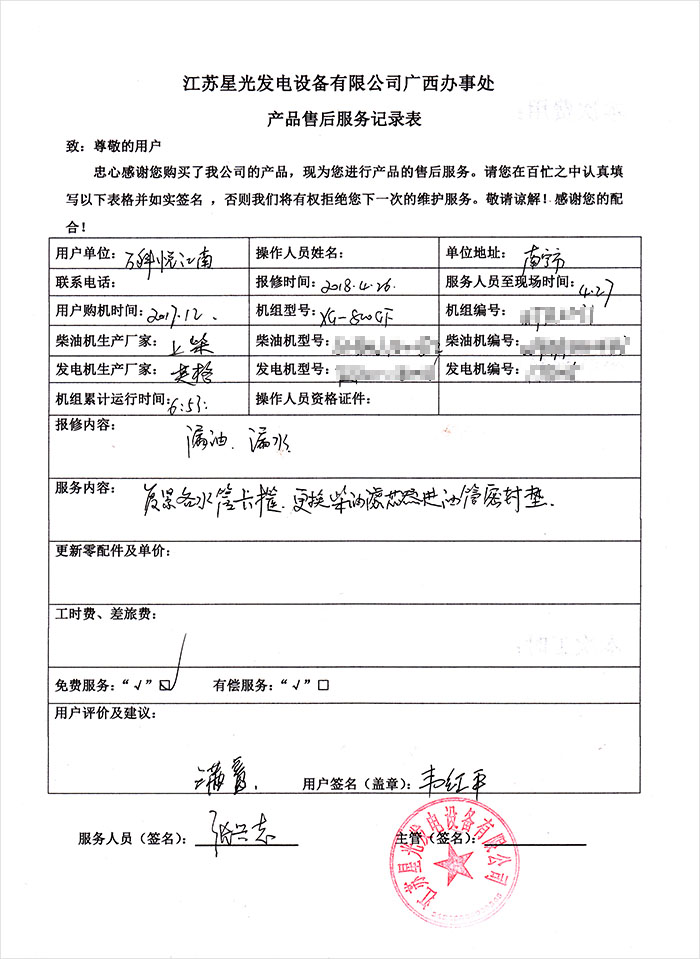 江苏星光发电设备有限公司广西办事处
产品售后服务记录表
致：尊敬的用户
忠心感谢您购买了我公司的产品，现为您进行产品的售后服务。请您在百忙之中认真填
写以下表格并如实签名 ，否则我们将有权拒绝您下一次的维护服务。敬请谅解！感谢您的配
合！
用户单位：万科悦江南 操作人员姓名： 单位地址：南宁市
联系电话： 报修时间：2018.4.26 服务人员至现场时间：4.27
用户购机时间：2017.12. 机组型号：XG-800GF 机组编号：
柴油机生产厂家：上柴 柴油机型号： 柴油机编号：
发电机生产厂家： 发电机型号： 发电机编号：
机组累计运行时间：6:53. 操作人员资格证件：
报修内容：
漏油、漏水
服务内容：
各水管卡 更换柴油滤芯 进油管密封垫.
更新零配件及单价：
工时费、差旅费：
免费服务：“√”☑ 有偿服务：“√”□
用户评价及建议：
满意. 用户签名（盖章）：韦红平
服务人员（签名）：张兴志 主管（签名）：
江苏星光发电设备有限公司